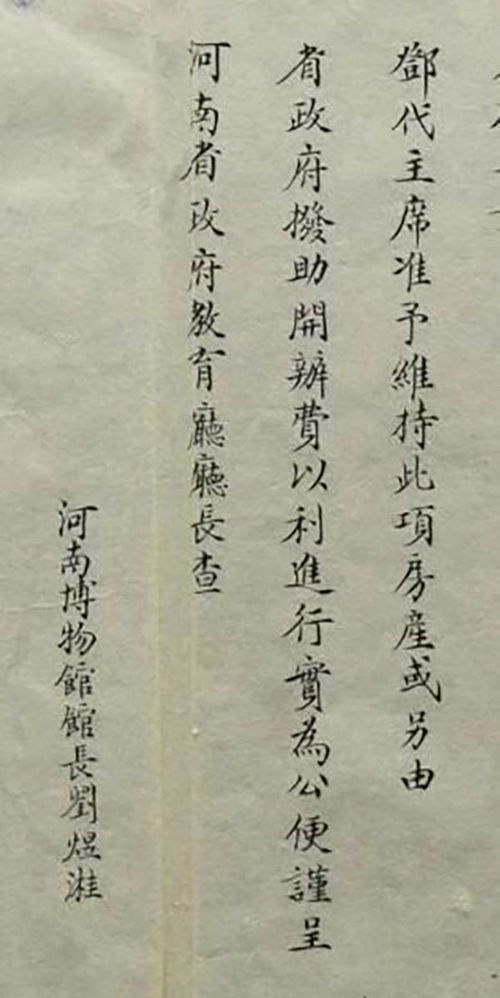 鄧代主席准予維持此項房產或另由
省政府撥助開辦費以利進行實為公便謹呈
河南省政府教育廳廳長查
河南博物館館長劉煜溎